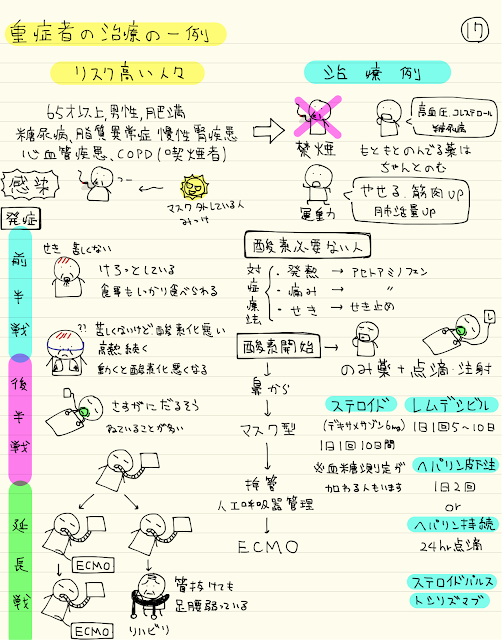 重症者の治療の一例
17
リスク高い人々
治療例
65才以上,男性,肥満
糖尿病,脂質異常症 慢性腎疾患
心血管疾患、COPD(喫煙者)
禁煙
高血圧、コレステロール
糖尿病
もともとのんでる薬は
ちゃんとのむ
運動
やせる 筋肉UP
肺活量UP
感染
マスク外している人
みっけ
発症
前半戦
せき 苦しくない
けろっとしている
食事もしっかり食べられる
?? 苦しくないけど酸素化悪い
高熱続く
動くと酸素化悪くなる
後半戦
さすがにだるそう
ねていることが多い
延長戦
ECMO
ECMO
管抜けても
足腰弱っている
リハビリ
酸素必要ない人
対症療法
・発熱 → アセトアミノフェン
・痛み → 〃
・せき → せき止め
酸素開始
のみ薬+点滴・注射
鼻から
マスク型
挿管
人工呼吸器管理
ECMO
ステロイド
(デキサメサゾン6mg)
1日1回10日間
※血糖測定が
加わる人もいます
レムデシビル
1日1回5~10日
ヘパリン皮下注
1日2回
or
ヘパリン持続
24hr点滴
ステロイドパルス
トシリズマブ